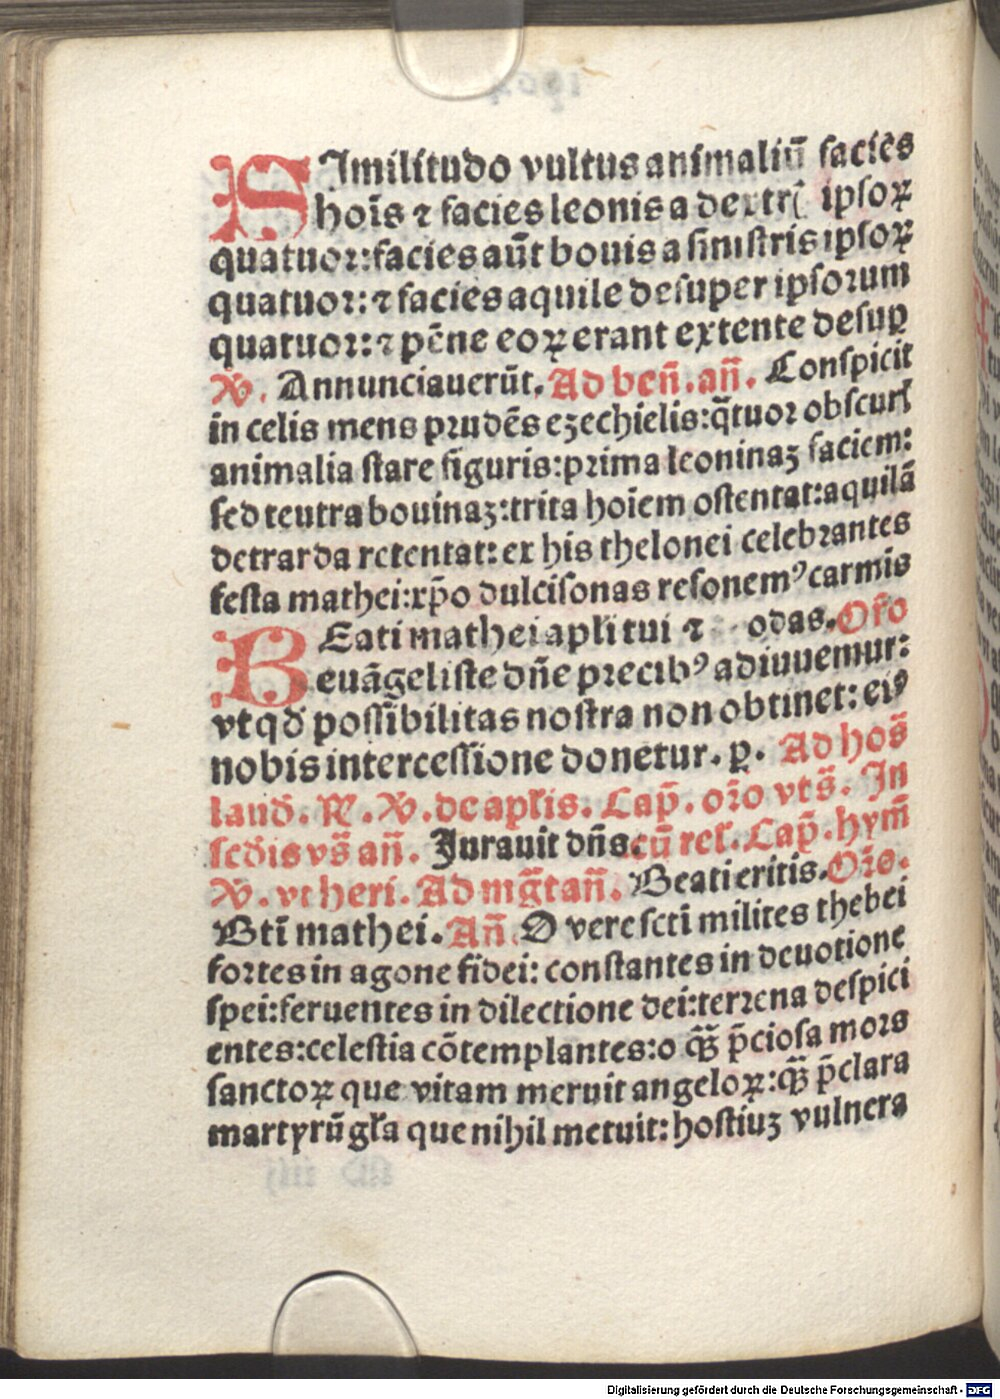 SImilitudo vultus animaliū facies
hoīs ⁊ facies leonis a dextr ipsoꝝ
quatuor: facies aūt bouis a sinistris ipsoꝝ
quatuor: ⁊ facies aquile desuper ipsorum
quatuor: ⁊ pēne eoꝝ erant extente desuꝑ
℣. Annunciauerūt. Ad beñ. añ. Conspicit
in celis mens prudēs ezechielis: q̄tuor obscurꝭ
animalia stare figuris: prima leoninaꝫ faciem:
sed teutra bouinaꝫ: trita hoīem ostentat: aquilā
detrarda retentat: ex his thelonei celebrantes
festa mathei: xp̄o dulcisonas resonemꝰ carmīs
BEati mathei apli tui ⁊ odas. Oro
euāgeliste dn̄e precibꝰ adiuuemur:
vt qd̄ possibilitas nostra non obtinet: eiꝰ
nobis intercessione donetur. ꝑ. Ad hoš
laud̄. ℟. ℣. de aplīs. Cap̄. or̄o vtš. In
scd̄is vš añ. Jurauit dn̄s. cū rel̄. Cap̄. hym̄
℣. vt heri. Ad mḡt añ. Beati eritis. Or̄s.
Btī mathei. Añ. O vere sctī milites thebei
fortes in agone fidei: constantes in deuotione
spei: feruentes in dilectione dei: terrena despici
entes: celestia cōtemplantes: o q̄ꝫ p̄ciosa mors
sanctoꝝ que vitam meruit angeloꝝ: q̄ꝫ p̄clara
martyrū gl̄a que nihil metuit: hostiuꝫ vulnera
Digitalisierung gefördert durch die Deutsche Forschungsgemeinschaft - DFG